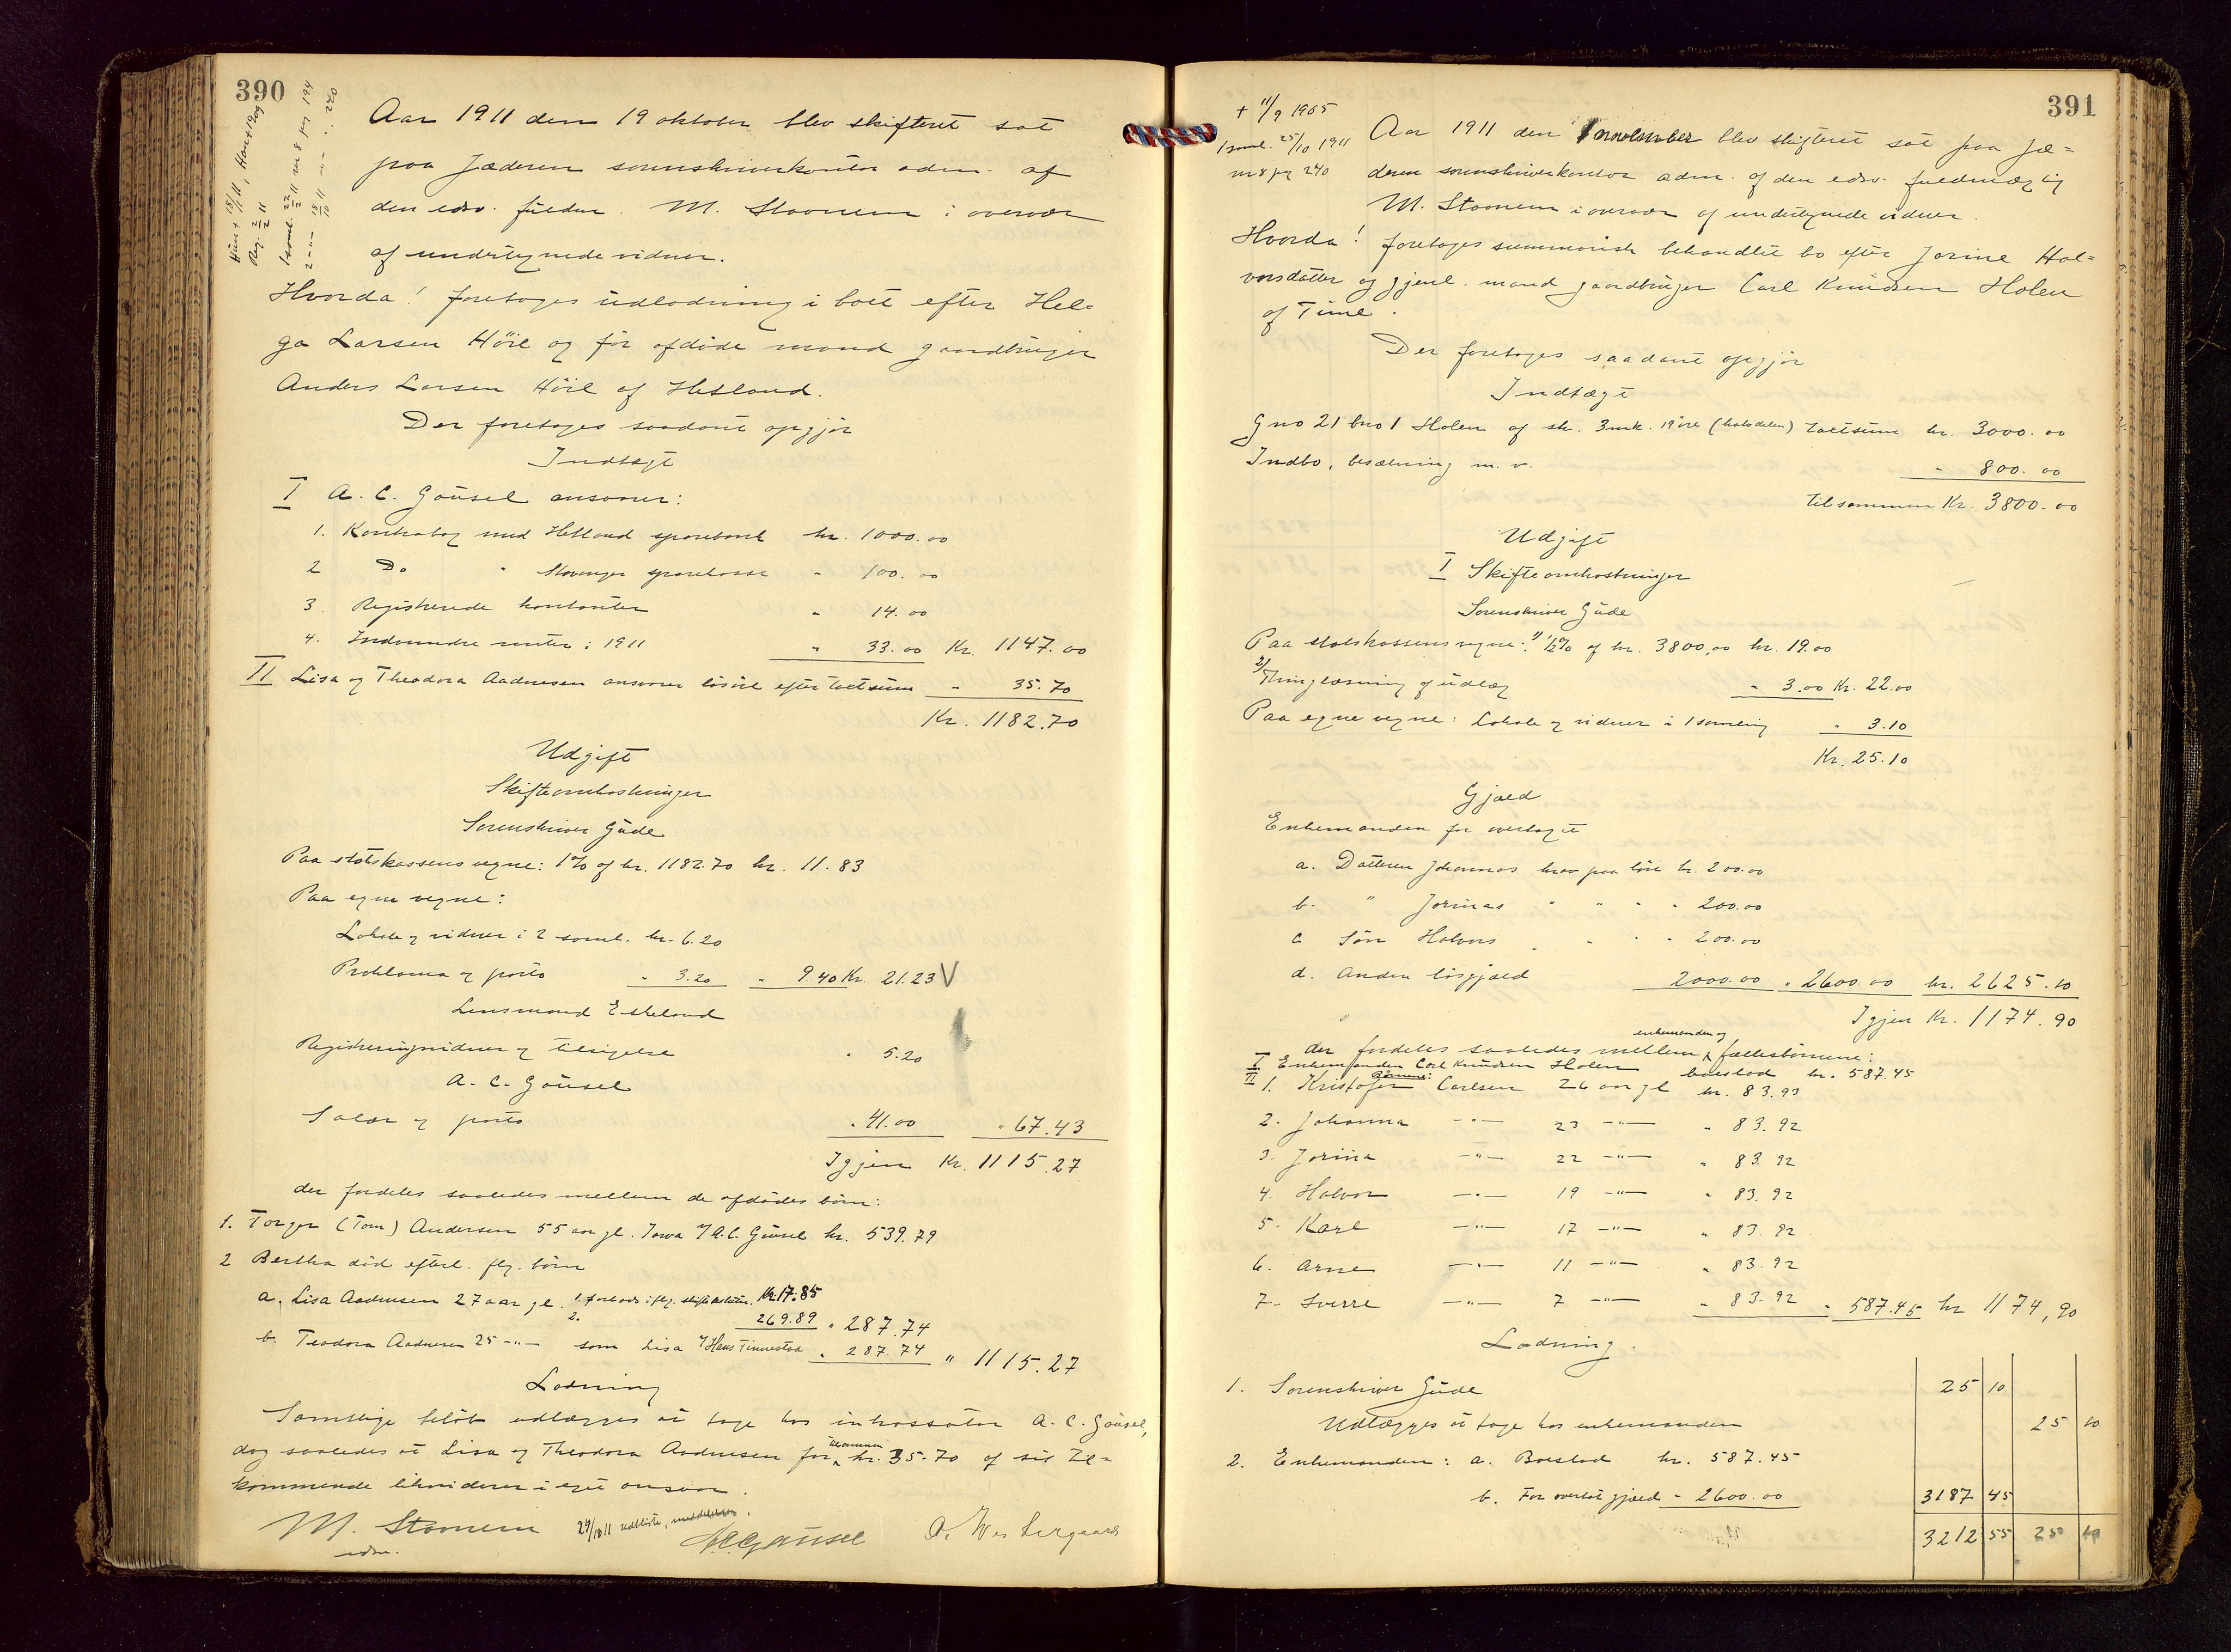 390
Hun + 18/1 11, Han + 19 og
Reg. 2/2 11
1 saml. 22/2 11 no 8 pg 194
2 -"- 18/10 11 -"- " 240
Aar 1911 den 19 oktober blev skifteret sat
paa Jæderen sorenskriverkontor adm. af
den edsv. fuldm. M. Stornem i overvær
af undertegnede vidner.
Hvorda! foretoges udlodning i boet efter Hel-
ga Larsen Höie og før afdöde mand gaardbruger
Anders Larsen Höie af Hetland.
Der foretoges saadant opgjör
Indtægt
I A. C. Gausel ansvarer:
1. Kontrabog med Hetland sparebank kr. 1000.00
2 Do " Stavanger sparekasse " 100.00
3. Registrerede kontanter " 14.00
4. Indvundne renter i 1911 " 33.00 Kr. 1147.00
II Lisa og Theodora Aadnesen ansvarer lösöre efter taktsum " 35.70
Kr. 1182.70
Udgift
Skifteomkostninger
Sorenskriver Gude
Paa statskassens vegne: 1% af kr. 1182.70 kr. 11.83
Paa egne vegne:
Lokale og vidner i 2 saml. kr. 6.20
Proklama og porto " 3.20 " 9.40 Kr. 21.23 V
Lensmand Eskeland
Registreringsvidner og tilsigelse " 5.20
A. C. Gausel
Salær og porto " 41.00 " 67.43
Igjen Kr. 1115.27
der fordeles saaledes mellem de afdödes börn:
1. Torger (Tom) Andersen 55 aar gl. Iowa v/ A.C. Gausel kr. 539.79
2 Bertha död efterl. flg. börn
a. Lisa Aadnesen 27 aar gl. 1. forlods ifl. skiftesaml. Kr. 17.85
2. 269.89 " 287.74
b. Teodora Aadnesen 25 -"- som Lisa v/ Hans Tinnestad " 287.74 " 1115.27
Lodning
Samtlige beløb udlægges at tage hos inkassator A. C. Gausel,
dog saaledes at Lisa og Theodora Aadnesen for tilsammen kr. 35.70 af sit til-
kommende likviderer i eget ansvar.
M. Stornem
edsv.
24/10 11 udliste, meddelelse.
ACGausel
A. Westergaard
391
+ 11/9 1905
1 saml. 25/10 1911
no 8 pg 240
Aar 1911 den 1 november blev skifteret sat paa Jæ-
deren sorenskriverkontor adm. af den edsv. fuldmægtig
M. Stornem i overvær af undertegnede vidner.
Hvorda! foretoges summarisk behandlet bo efter Jorine Hal-
vorsdatter og gjenl. mand gaardbruger Carl Knudsen Holen
af Time.
Der foretoges saadant opgjör
Indtægt
G no 21 bno 1 Holen af sk. 3 mk. 19 öre (halvdelen) taktsum kr. 3000.00
Indbo, besætning m. v. " 800.00
tilsammen Kr. 3800.00
Udgift
I Skifteomkostninger
Sorenskriver Gude
Paa statskassens vegne: 1/ 1/2% af kr. 3800,00 kr. 19.00
2/ Thinglæsning af udlæg " 3.00 Kr. 22.00
Paa egne vegne: Lokale og vidner i 1 samling " 3.10
Kr. 25.10
Gjæld
Enkemanden har overtaget
a. Datteren Johannas krav paa lön kr. 200.00
b. " Jorinas " " " " 200.00
c Sön Halvors " " " " 200.00
d. Anden lösgjæld 2000.00 " 2600.00 kr. 2625.10
Igjen Kr. 1174.90
der fordeles saaledes mellem enkemanden og fællesbörnene:
I Enkemanden Carl Knudsen Holen boeslod kr. 587.45
II Börnene:
1. Kristofer Carlsen 26 aar gl kr. 83.93
2. Johanna -"- 23 -"- " 83.92
3. Jorina -"- 22 -"- " 83.92
4. Halvor -"- 19 -"- " 83.92
5. Karl -"- 17 -"- " 83.92
6. Arne -"- 11 -"- " 83.92
7. Sverre -"- 7 -"- " 83.92 " 587.45 kr 1174,90
Lodning.
1. Sorenskriver Gude 25 10
Udlægges at tage hos enkemanden 25 10
2. Enkemanden: a. Boeslod kr. 587.45
b. For overtat gjæld " 2600.00 3187 45
3212 55 25 10